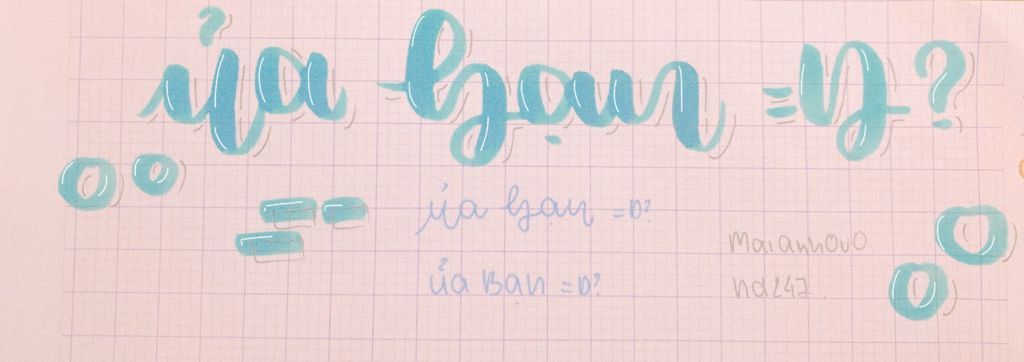 ủa bạn =D?
ủa bạn =D?
ủa Bạn =D?
Maianhovo
nd247